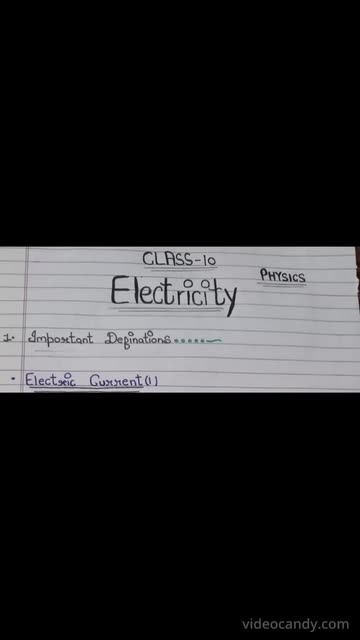 CLASS-10
PHYSICS
Electricity
1. Important Definations
• Electric Current (I)
videocandy.com